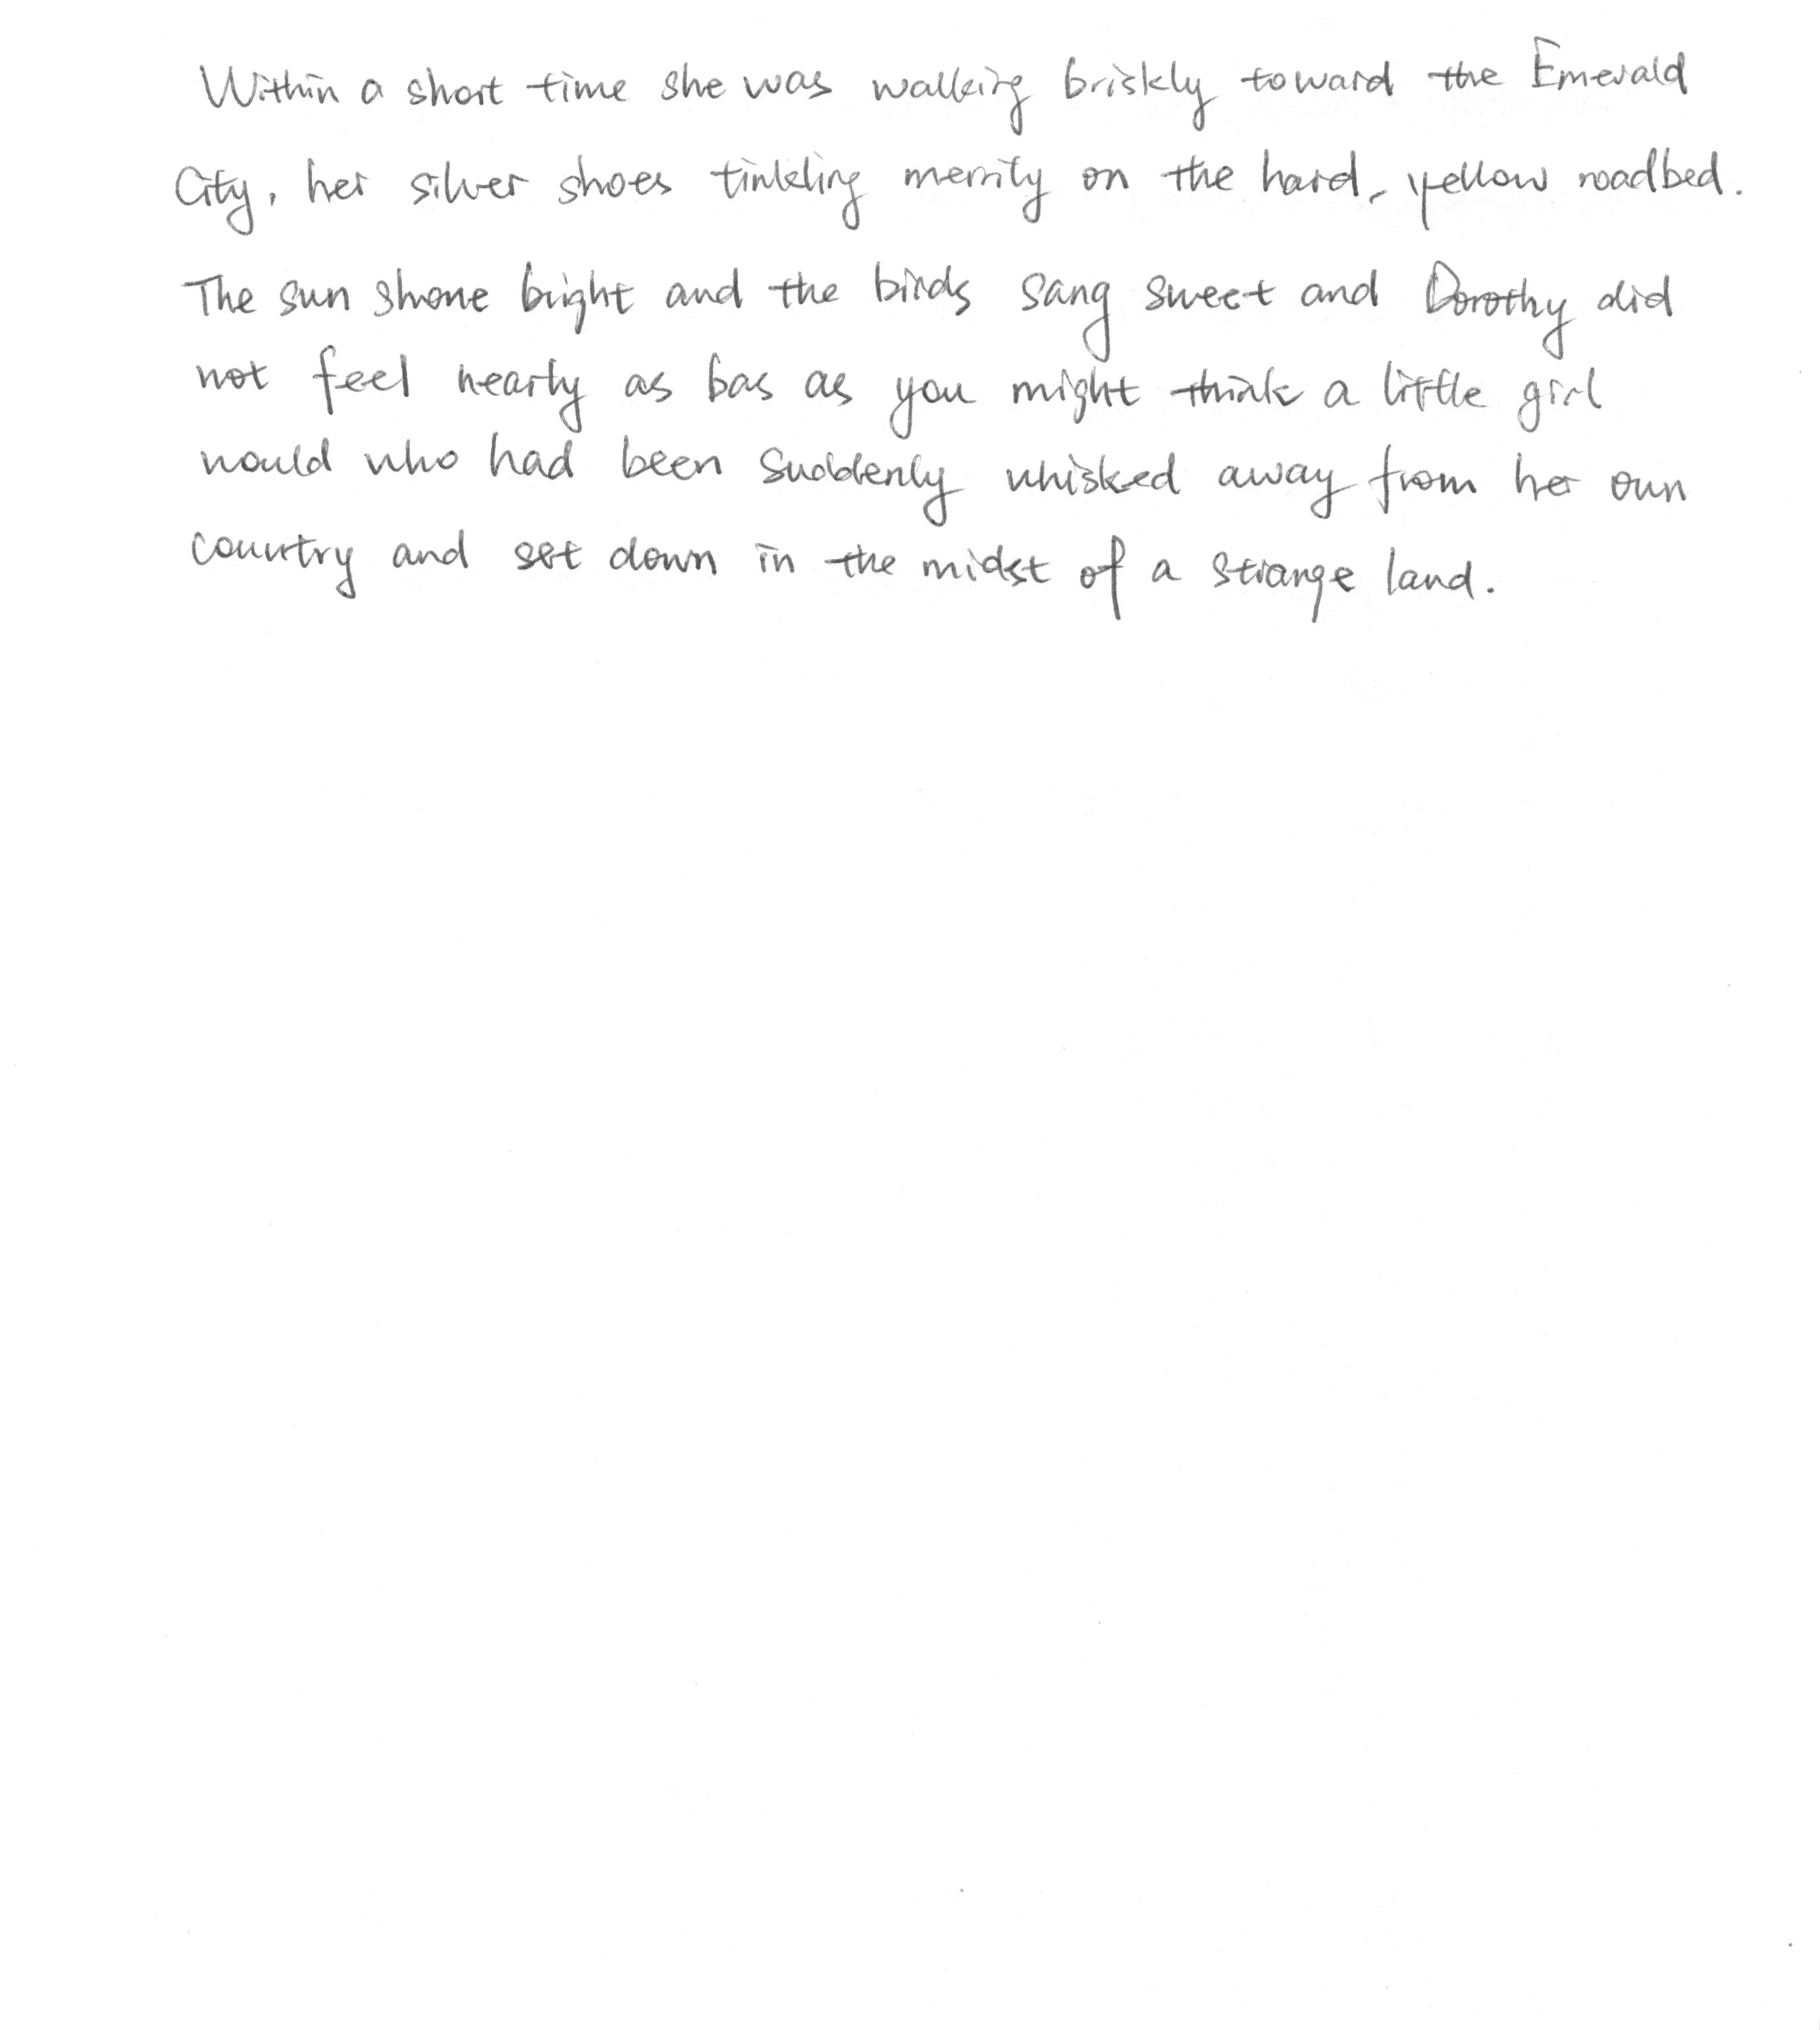 Within a short time she was walking briskly toward the Emerald
City, her silver shoes tinkling merrily on the hard, yellow roadbed.
The sun shone bright and the birds sang sweet and Dorothy did
not feel nearly as bas as you might think a little girl
would who had been suddenly whisked away from her own
country and set down in the midst of a strange land.